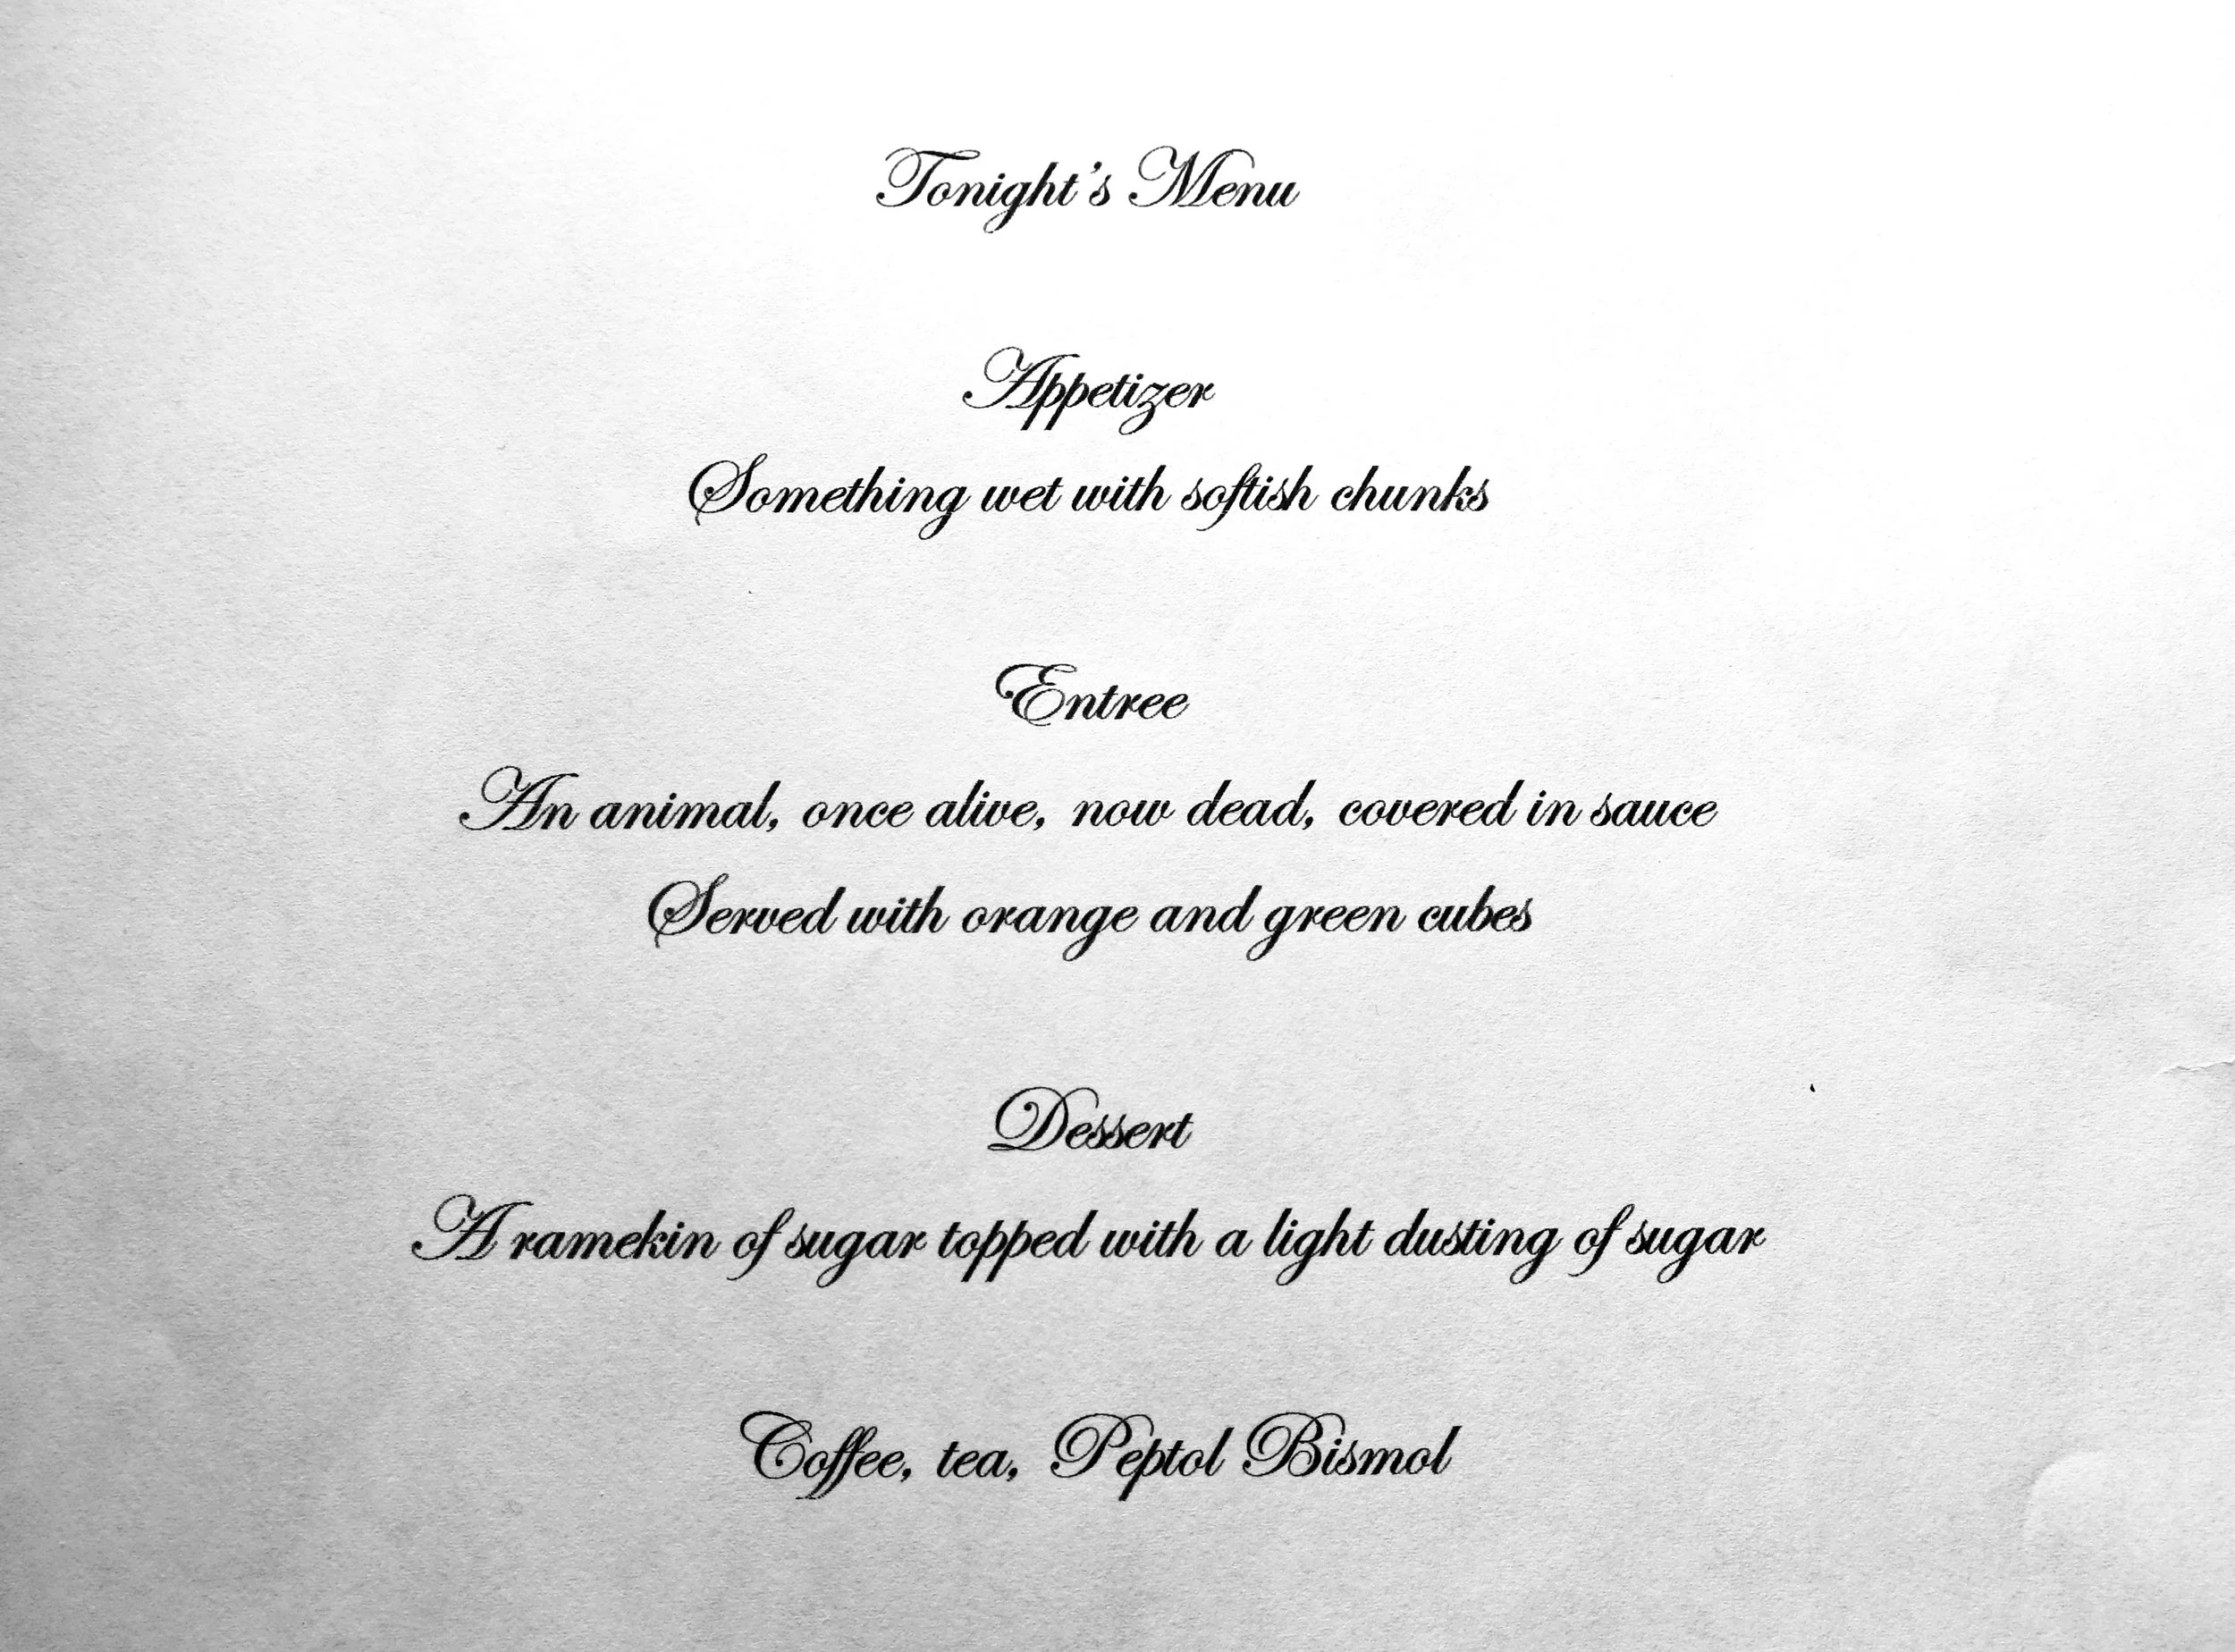 Tonight's Menu
Appetizer
Something wet with softish chunks
Entree
An animal, once alive, now dead, covered in sauce
Served with orange and green cubes
Dessert
A ramekin of sugar topped with a light dusting of sugar
Coffee, tea, Peptol Bismol